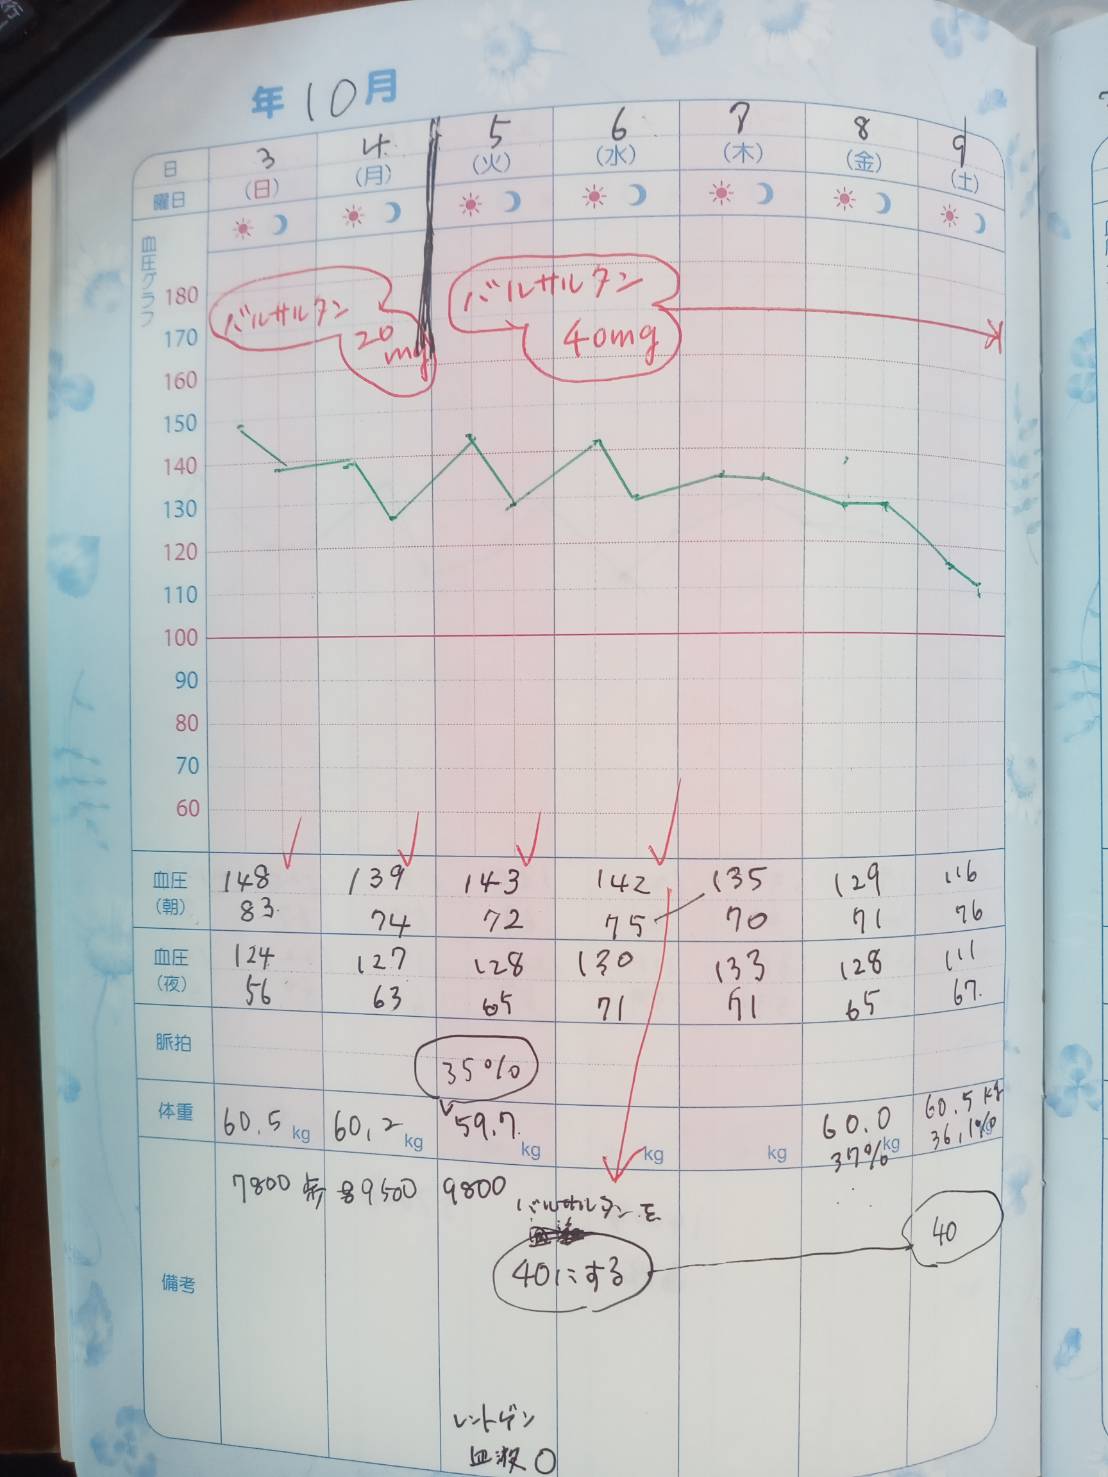 年 10 月
日 3 4 5 6 7 8 9
曜日 (日) (月) (火) (水) (木) (金) (土)
血圧グラフ
バルサルタン
20
mg
バルサルタン
40mg
180
170
160
150
140
130
120
110
100
90
80
70
60
血圧 148 139 143 142 135 129 116
(朝) 83 74 72 75 70 71 76
血圧 124 127 128 130 133 128 111
(夜) 56 63 65 71 71 65 67
脈拍 35%
体重 60.5 kg 60.2 kg 59.7 kg kg kg 60.0 kg 60.5 kg
37% 36.1%
備考 7800 歩 9500 9800
バルサルタンを
40にする 40
レントゲン
血液